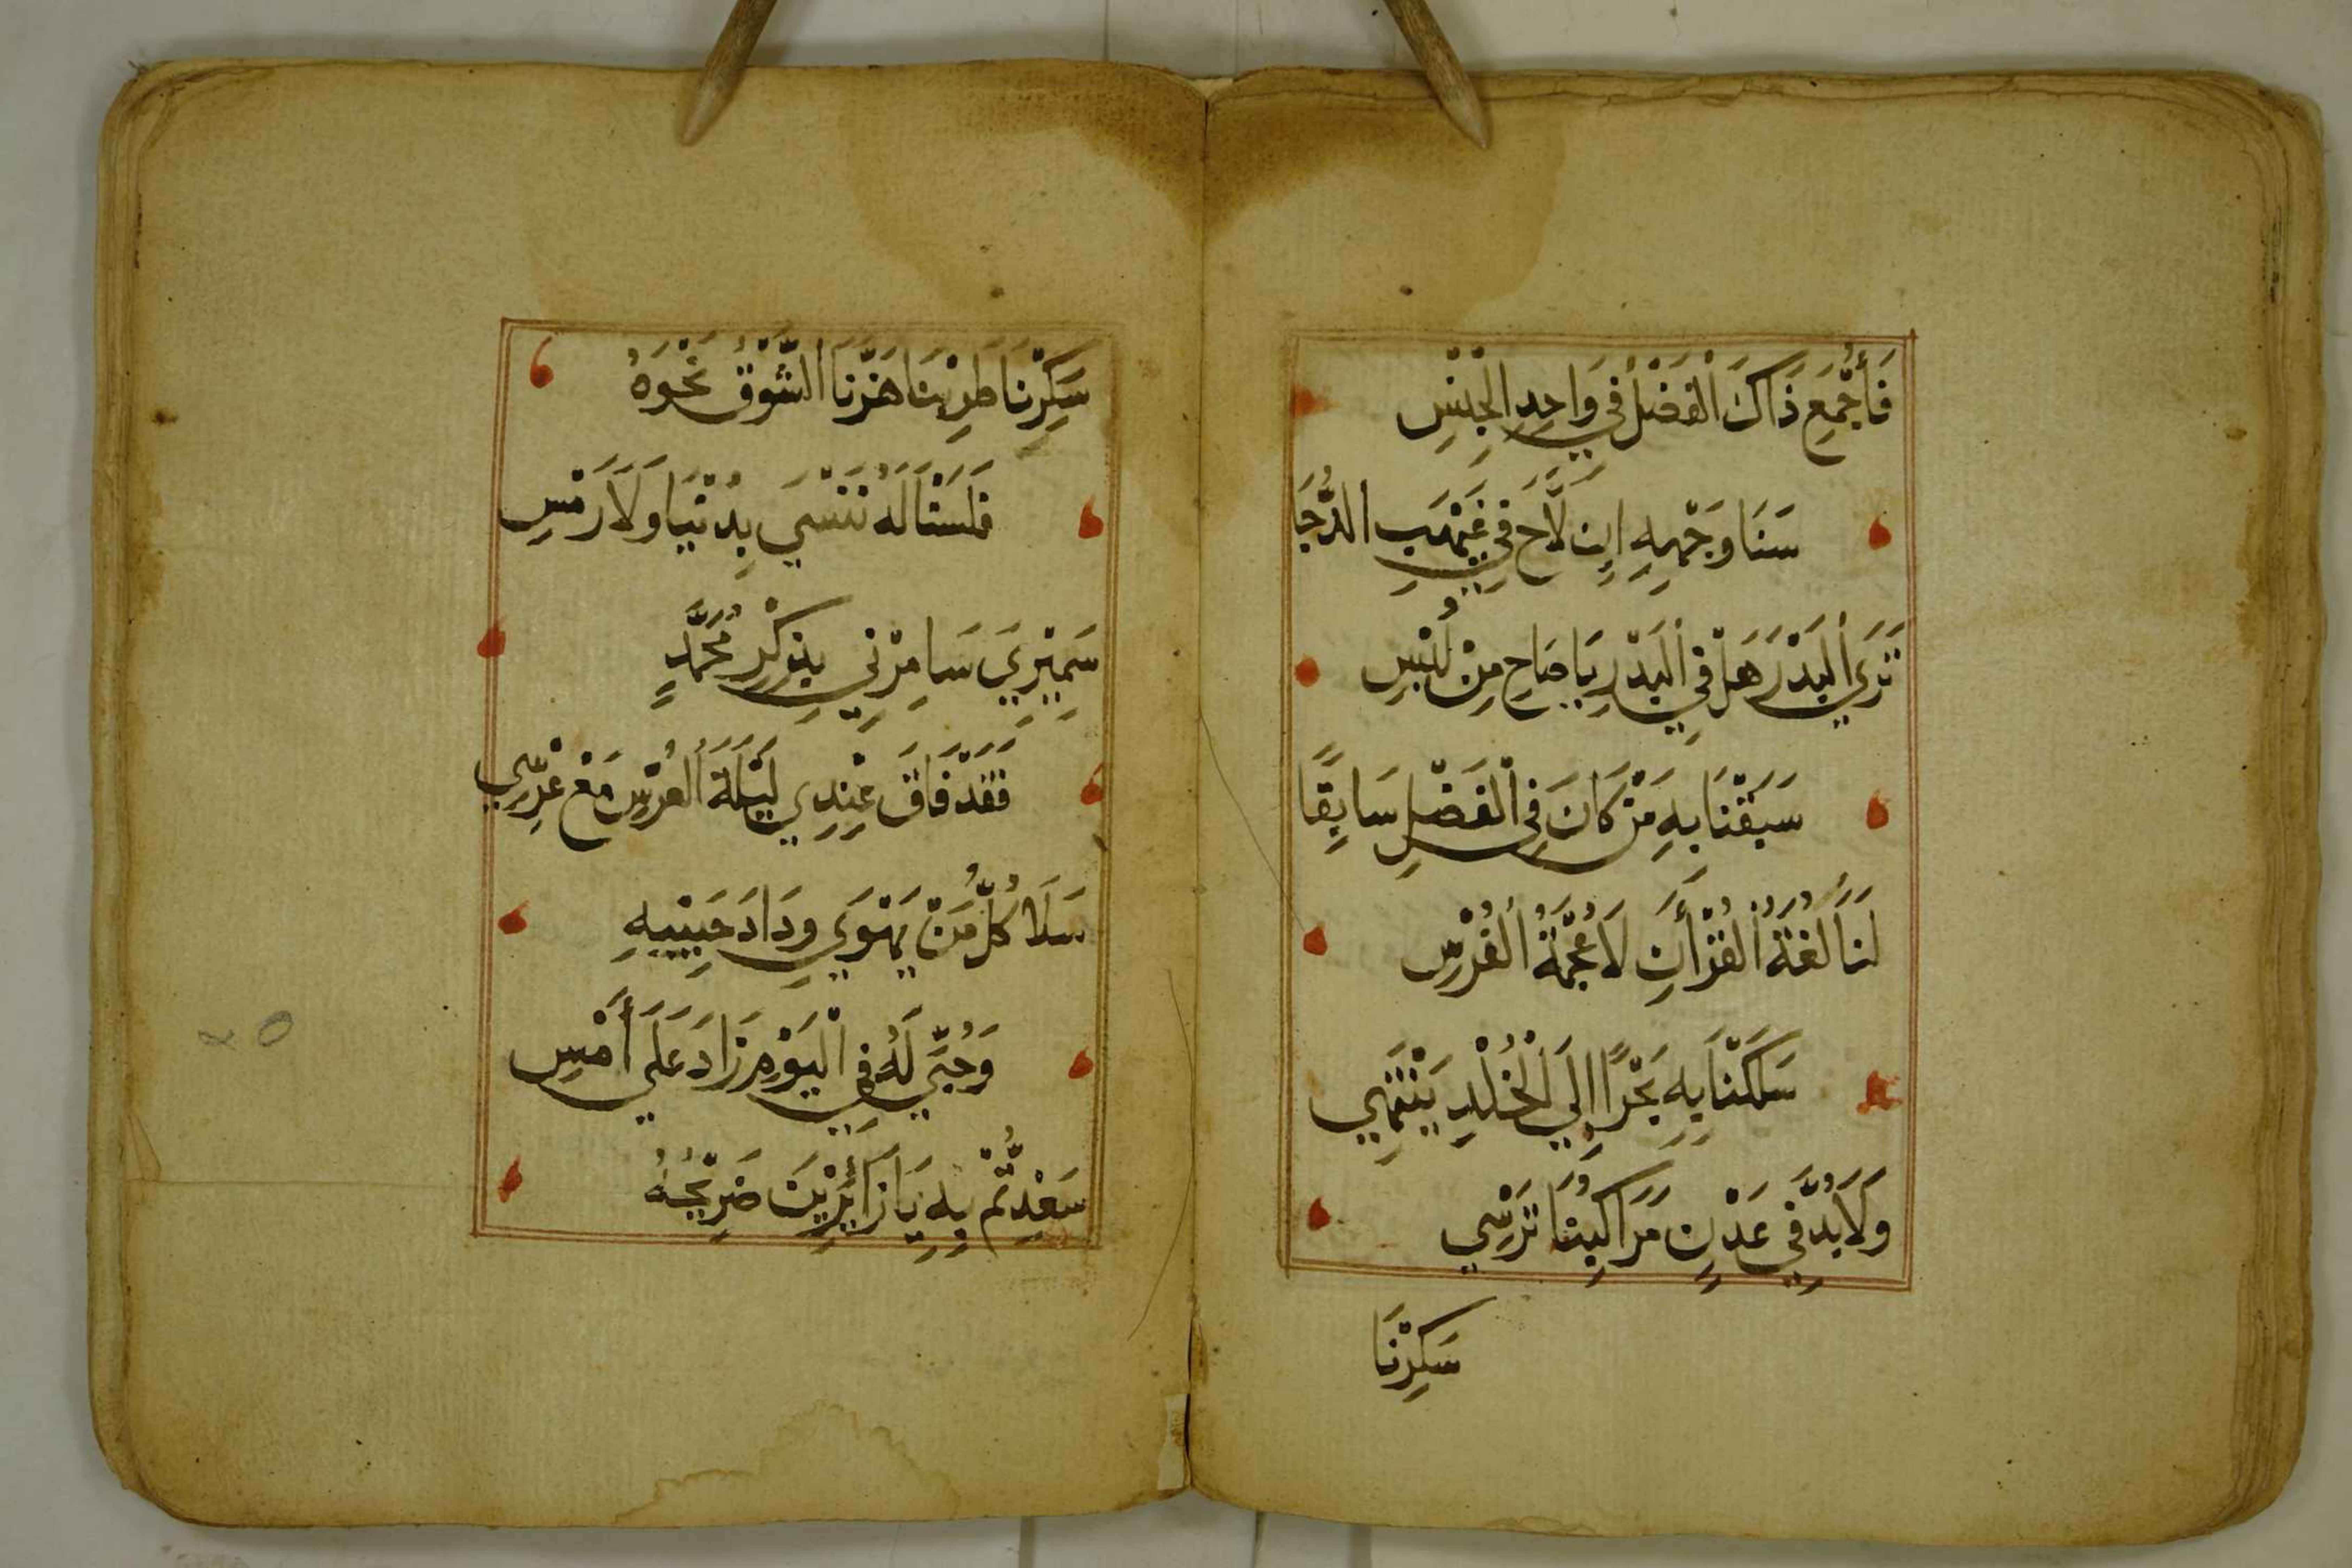 فَأُجْمِعَ ذَاكَ الْفَضْلُ فِي وَاحِدِ الْجِنْسِ
سَنَا وَجْهِهِ إِن لَّاحَ فِي غَيْهَبِ الدُّجَا
تَرَي الْبَدْرَ هَلْ فِي الْبَدْرِ يَا صَاحِ مِنْ لُبْسِ
سَبَقْنَا بِهِ مَنْ كَانَ فِي الْفَضْلِ سَابِقًا
لَنَا لُغَةُ الْقُرْأَنِ لَا عُجْمَةُ الْفُرْسِ
سَلَكْنَا بِهِ بَحْرًا إِلَي الْخُلْدِ يَنْتَهِي
وَلَابُدَّ فِي عَدْنٍ مَرَاكِبُنَا تَرْسِي
سَكِرْنَا
سَكِرْنَا طَرِبْنَا هَزَّنَا الشَّوْقُ نَحْوَهُ
فَلَسْنَا لَهُ نَنْسَي بِدُنْيَا وَلَا رَمْسِ
سَمِيْرِيَ سَامِرْنِي بِذِكْرِ مُحَمَّدٍ
فَقَدْ فَاقَ عِنْدِي لَيْلَةَ الْعُرْسِ مَعْ عِرْسِي
سَلَا كُلُّ مَنْ يَهْوَي وِدَادَ حَبِيْبِهِ
وَحُبِّي لَهُ فِي الْيَوْمِ زَادَ عَلَي أَمْسِ
سَعِدْتُّمْ بِهِ يَا زَائِرِيْنَ ضَرِيْحَهُ